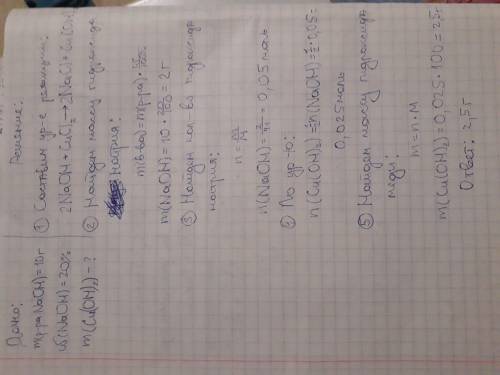 Дано:
m(р-ра NaOH)=10г
ω(NaOH)=20%
m(Cu(OH)₂)-?
Решение:
① Составим ур-е реакции:
2NaOH+CuCl₂→2NaCl+Cu(OH)
② Найдем массу гидроксида
натрия:
m(в-ва)=m(р-ра)·
m(NaOH)=10·20/100=2г
③ Найдем кол-во гидроксида
натрия:
n=m/M
n(NaOH)=2/40=0,05моль
④ По ур-ю:
n(Cu(OH)₂)=½n(NaOH)=½·0,05=
0.025моль
⑤ Найдем массу гидроксида
меди:
m=n·M
m(Cu(OH)₂)=0,025·100=2,5г
Ответ: 2,5г